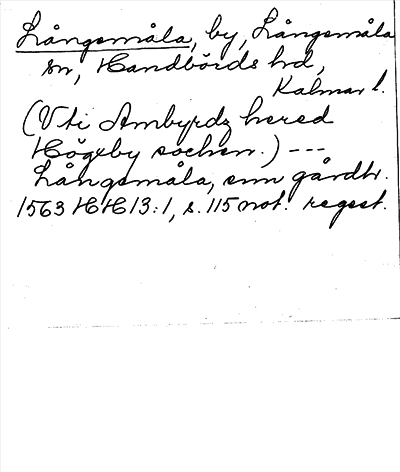 Långemåla, by, Långemåla
sn, Handbörds hd,
Kalmar l.
(Vti Ambyrdz hered
Högxby sochen.) ---
Långemåla, sum gårdtr.
1563 HH 13:1, s. 115 not. regest.